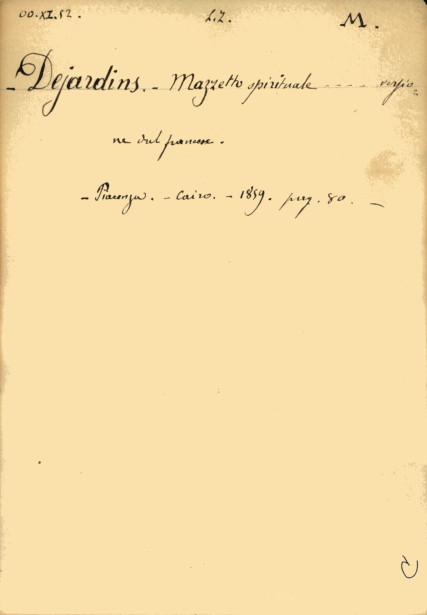 00.XI.52. L.Z. M.
- Dejardins. - Mazzetto spirituale ---- versio=
ne dal francese.
- Piacenza. - Cairo. - 1859. pag. 80. -